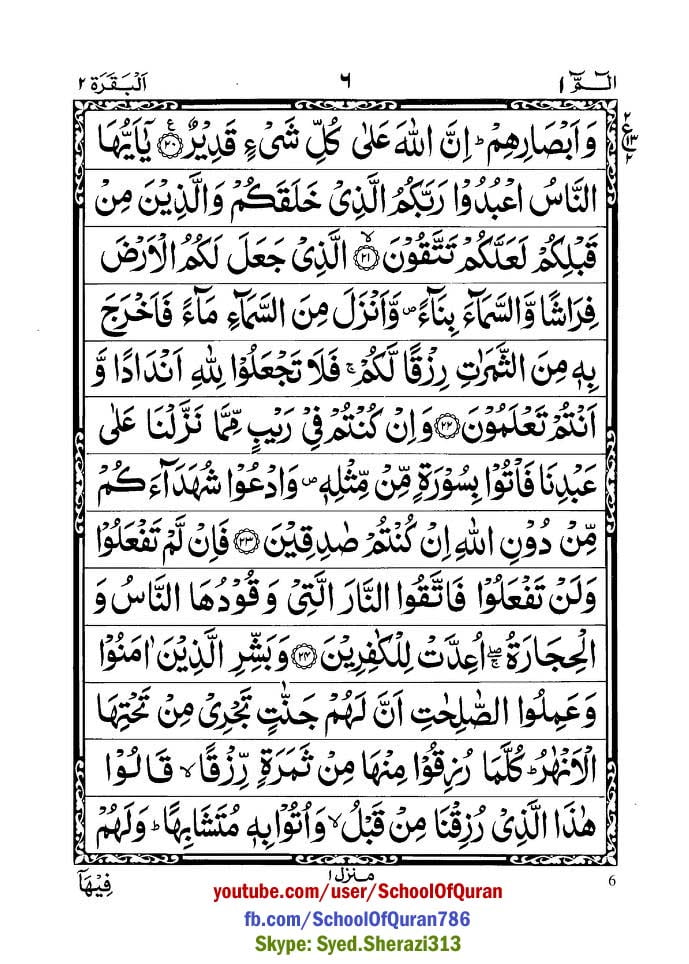 الٓمّٓ ۱ ٦ اَلْبَقَرَة ۲
وَاَبْصَارِهِمْ ؕ اِنَّ اللّٰهَ عَلٰى كُلِّ شَىْءٍ قَدِيْرٌ ﴿۲۰﴾ ع يٰۤاَيُّهَا
۲ ع ۱۳ ۲
النَّاسُ اعْبُدُوْا رَبَّكُمُ الَّذِىْ خَلَقَكُمْ وَالَّذِيْنَ مِنْ
قَبْلِكُمْ لَعَلَّكُمْ تَتَّقُوْنَ ﴿۲۱﴾ ۙ الَّذِىْ جَعَلَ لَكُمُ الْاَرْضَ
فِرَاشًا وَّالسَّمَآءَ بِنَآءً ۪ وَّاَنْزَلَ مِنَ السَّمَآءِ مَآءً فَاَخْرَجَ
بِهٖ مِنَ الثَّمَرٰتِ رِزْقًا لَّكُمْ ۚ فَلَا تَجْعَلُوْا لِلّٰهِ اَنْدَادًا وَّ
اَنْتُمْ تَعْلَمُوْنَ ﴿۲۲﴾ وَاِنْ كُنْتُمْ فِىْ رَيْبٍ مِّمَّا نَزَّلْنَا عَلٰى
عَبْدِنَا فَاْتُوْا بِسُوْرَةٍ مِّنْ مِّثْلِهٖ ۪ وَادْعُوْا شُهَدَآءَكُمْ
مِّنْ دُوْنِ اللّٰهِ اِنْ كُنْتُمْ صٰدِقِيْنَ ﴿۲۳﴾ فَاِنْ لَّمْ تَفْعَلُوْا
وَلَنْ تَفْعَلُوْا فَاتَّقُوا النَّارَ الَّتِىْ وَقُوْدُهَا النَّاسُ وَ
الْحِجَارَةُ ۖۚ اُعِدَّتْ لِلْكٰفِرِيْنَ ﴿۲۴﴾ وَبَشِّرِ الَّذِيْنَ اٰمَنُوْا
وَعَمِلُوا الصّٰلِحٰتِ اَنَّ لَهُمْ جَنّٰتٍ تَجْرِىْ مِنْ تَحْتِهَا
الْاَنْهٰرُ ؕ كُلَّمَا رُزِقُوْا مِنْهَا مِنْ ثَمَرَةٍ رِّزْقًا ۙ قَالُوْا
هٰذَا الَّذِىْ رُزِقْنَا مِنْ قَبْلُ ۙ وَاُتُوْا بِهٖ مُتَشَابِهًا ؕ وَلَهُمْ
منزل ۱
فِيْهَآ
6
youtube.com/user/SchoolOfQuran
fb.com/SchoolOfQuran786
Skype: Syed.Sherazi313